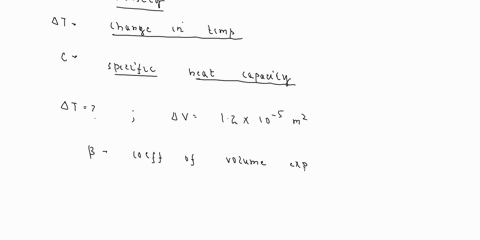 ΔT - change in temp
C - specific heat capacity
ΔT = ? ; ΔV = 1.2 × 10⁻⁵ m²
β - coeff of volume exp